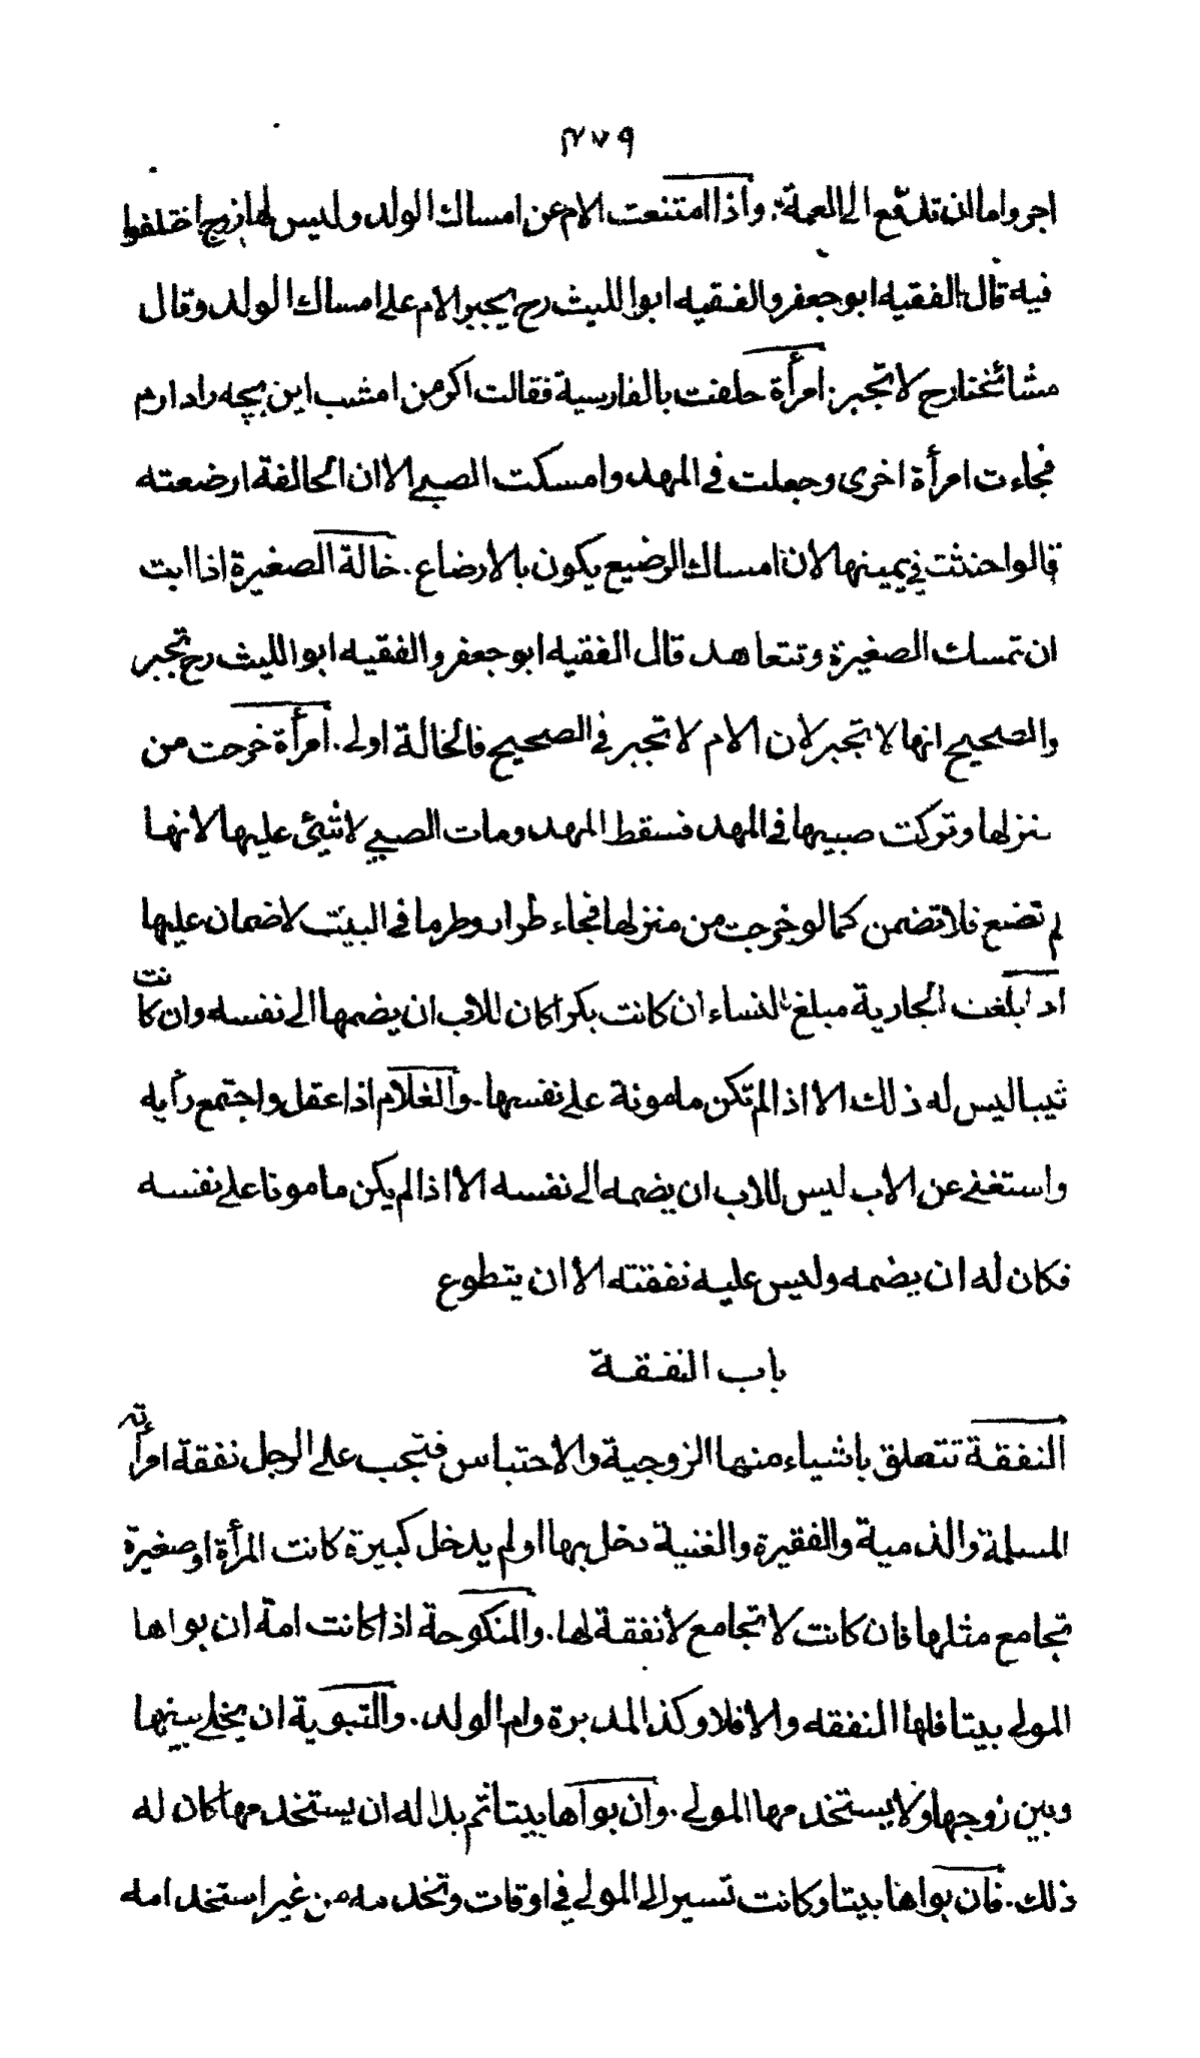 ٤٧٩
اجر واما ان تدفع الى العمة. واذا امتنعت الام عن امساك الولد وليس لها زوج اختلفوا
فيه قال الفقيه ابو جعفر والفقيه ابوا الليث رح يجبر الام على امساك الولد وقال
مشائخنا رح لا تجبر. امرأة حلفت بالفارسية فقالت اكر من امشب اين بچه را دارم
فجاءت امرأة اخرى وجعلت في المهد وامسكت الصبي الا ان الحالفة ارضعته
قالوا حنثت في يمينها لان امساك الرضيع يكون بالارضاع. خالة الصغيرة اذا ابت
ان تمسك الصغيرة وتتعاهد قال الفقيه ابو جعفر والفقيه ابوا الليث رح تجبر
والصحيح انها لا تجبر لان الام لا تجبر في الصحيح فالخالة اولى. امرأة خرجت من
منزلها وتركت صبيها في المهد فسقط المهد ومات الصبي لا شئ عليها لانها
لم تضع فلا تضمن كما لو خرجت من منزلها فجاء طرار وطر ما في البيت لا ضمان عليها
اذا بلغت الجارية مبلغ النساء ان كانت بكرا كان للاب ان يضمها الى نفسه وان كانت
ثيبا ليس له ذلك الا اذا لم تكن مامونة على نفسها. والغلام اذا عقل واجتمع رأيه
واستغنى عن الاب ليس للاب ان يضمه الى نفسه الا اذا لم يكن مامونا على نفسه
فكان له ان يضمه وليس عليه نفقته الا ان يتطوع
باب النفقة
النفقة تتعلق باشياء منها الزوجية والاحتباس فتجب على الرجل نفقة امرأته
المسلمة والذمية والفقيرة والغنية دخل بها او لم يدخل كبيرة كانت المرأة او صغيرة
تجامع مثلها فان كانت لا تجامع لا نفقة لها. والمنكوحة اذا كانت امة ان بواها
المولى بيتا فلها النفقه والا فلا وكذا المدبرة وام الولد. والتبوية ان يخلي بينها
وبين زوجها ولا يستخدمها المولى. وان بواها بيتا ثم بدا له ان يستخدمها كان له
ذلك. فان بواها بيتا وكانت تسير الى المولى في اوقات وتخدمه من غير استخدامه